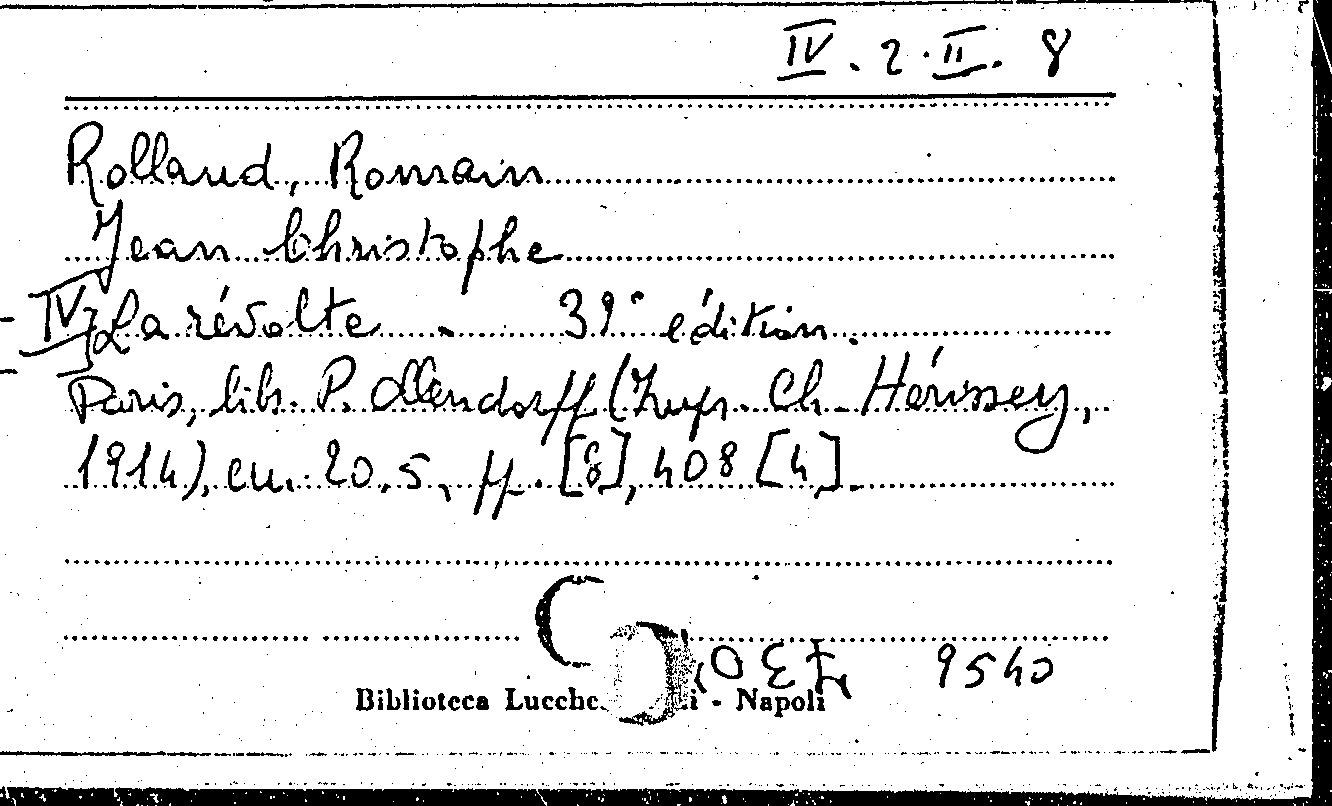 IV. 2. II. 8
Rolland, Romain
Jean Christophe
IV La révolte. 39ª édition.
Paris, lib. P. Ollendorff (Imp. Ch. Hérissey,
1914), cm. 20,5, pp. [8], 408 [4].
9540
Biblioteca Lucche i - Napoli